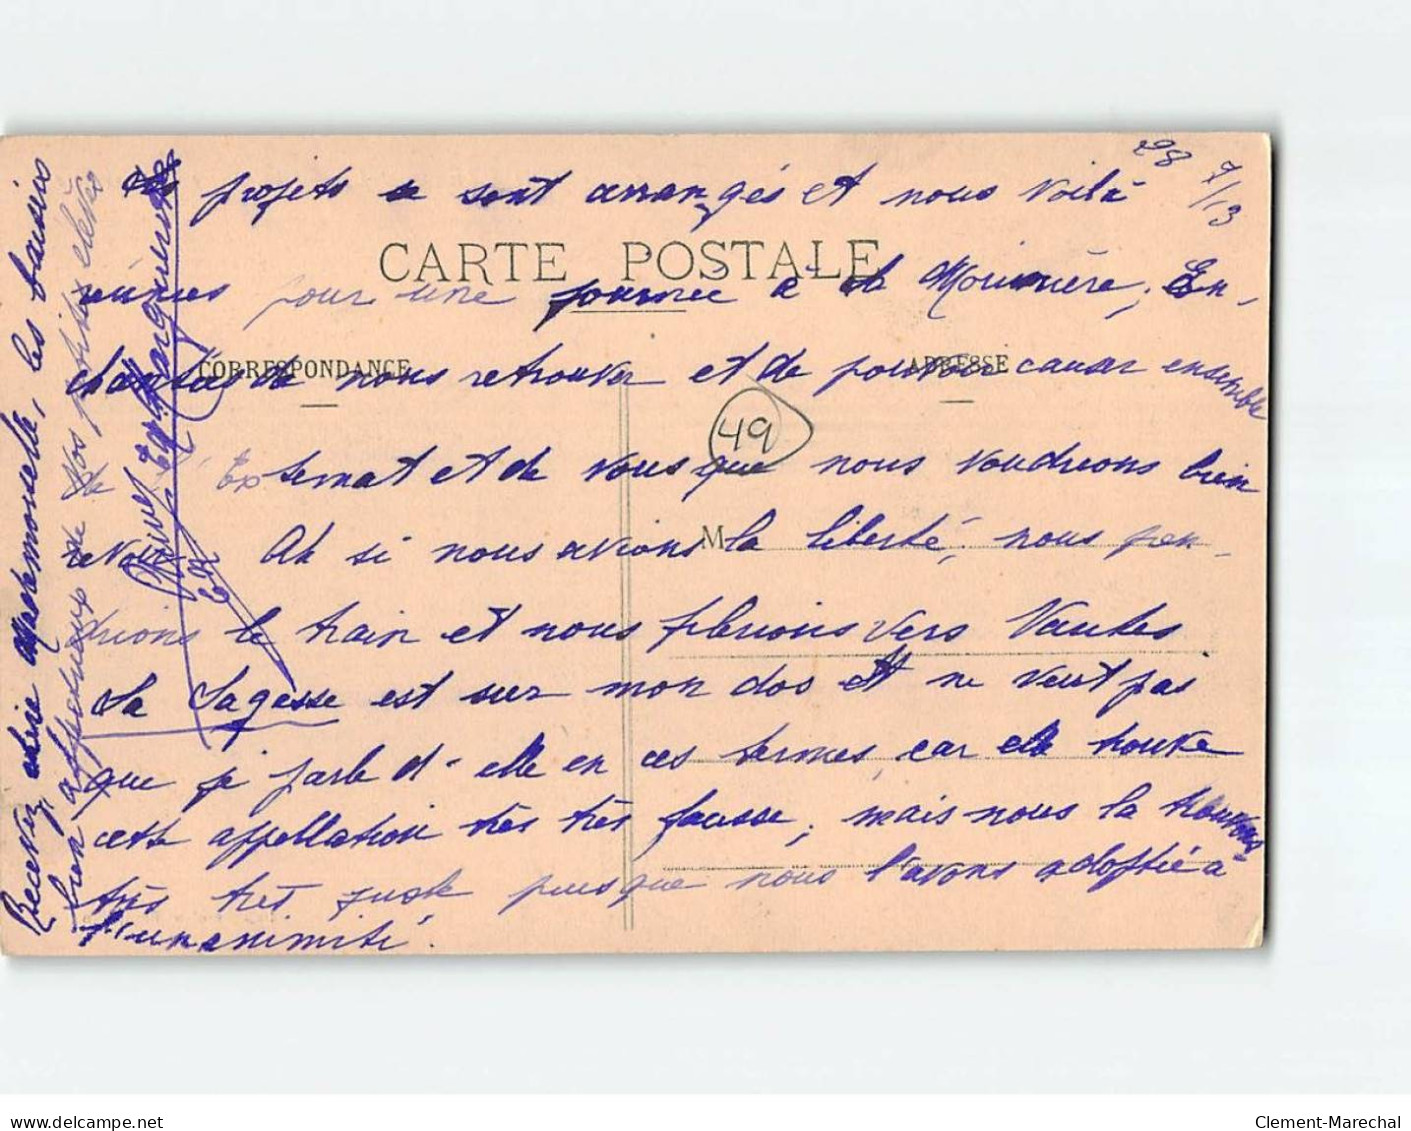 28
7/13
Les projets se sont arrangés et nous voilà
CARTE POSTALE
réunies pour une journée à la ; En-
CORRESPONDANCE
ADRESSE
chantées de nous retrouver et de pouvoir causer ensemble
49
de l'Externat et de vous que nous voudrions bien
revoir Ah si nous avions la liberté, nous pren-
M
drions le train et nous filerions vers Nantes
La Sagesse est sur mon dos et ne veut pas
que je parle d'elle en ces termes, car elle trouve
cette appellation très très fausse, mais nous la trouvons
très très juste puisque nous l'avons adoptée à
l'unanimité.
Recevez chère Mademoiselle, les baisers
bien affectueux de vos petites élèves
Clement-Marechal
www.delcampe.net